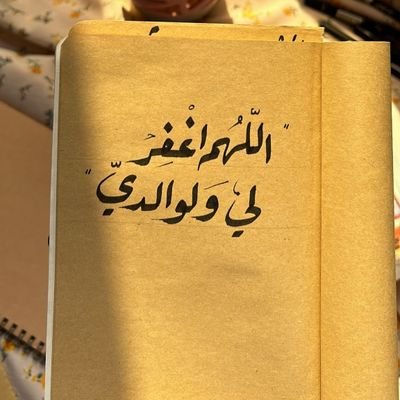 "اللّهُم اغْفِرْ
لي وَلوالديّ"